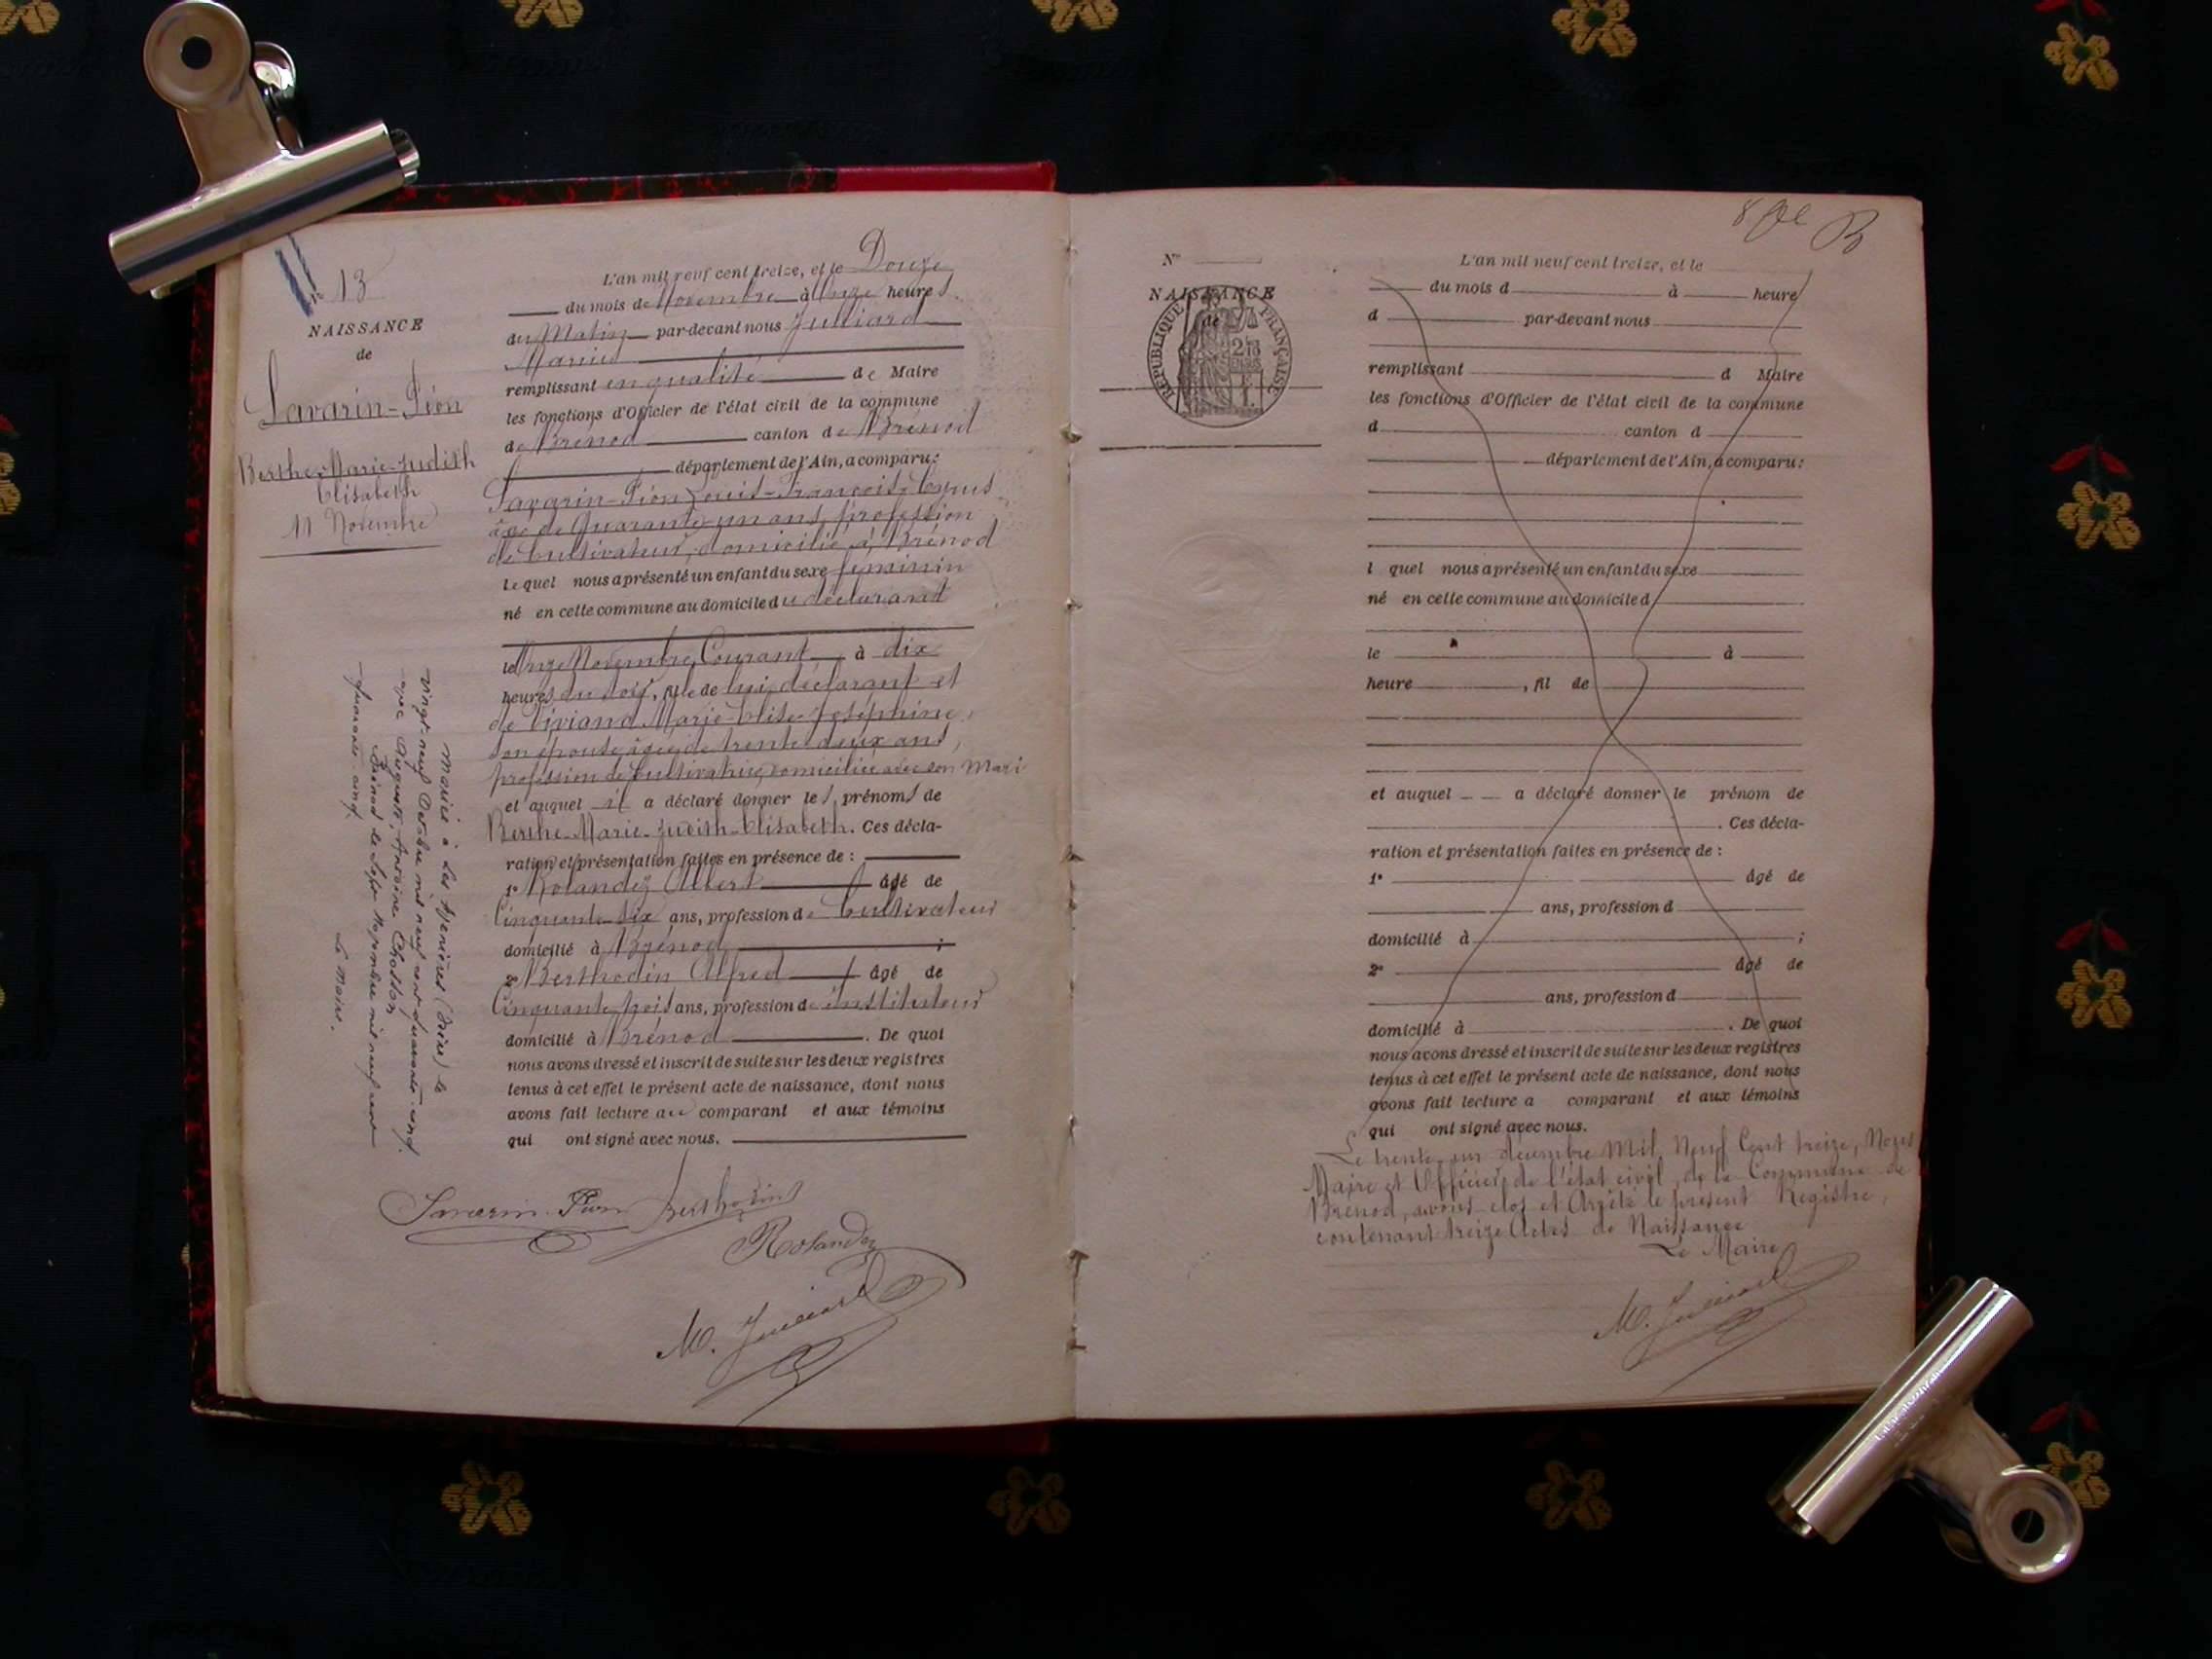 N° 13
NAISSANCE
de
Savarin-Pion
Berthe-Marie-Judith
Elisabeth
11 Novembre
Marié à Les Avenières (Isère) le
vingt-neuf Octobre mil neuf cent quarante-cinq.
avec Auguste, Antoine Chosson
Brénod le Sept Novembre mil neuf cent
quarante-cinq.
Le Maire.
L'an mil neuf cent treize, et le Douze
du mois de Novembre à Onze heures
du Matin par-devant nous Julliard
Marius
remplissant en qualité de Maire
les fonctions d'Officier de l'état civil de la commune
de Brénod canton de Brénod
département de l'Ain, a comparu:
Savarin-Pion Louis-François-Cyrus
âgé de Quarante-un ans, profession
de Cultivateur, domicilié à Brénod
lequel nous a présenté un enfant du sexe féminin
né en cette commune au domicile du déclarant
le Onze Novembre Courant à dix
heures du soir, fille de lui déclarant et
de Viviand Marie-Elise-Joséphine,
son épouse âgée de trente deux ans,
profession de Cultivatrice, domiciliée avec son Mari
et auquel il a déclaré donner les prénoms de
Berthe-Marie-Judith-Elisabeth. Ces décla-
ration et présentation faites en présence de :
1° Rolandez Albert âgé de
Cinquante six ans, profession de Cultivateur
domicilié à Brénod ;
2° Berthodin Alfred âgé de
Cinquante trois ans, profession de instituteur
domicilié à Brénod. De quoi
nous avons dressé et inscrit de suite sur les deux registres
tenus à cet effet le présent acte de naissance, dont nous
avons fait lecture au comparant et aux témoins
qui ont signé avec nous.
Savarin-Pion Berthodin
Rolandez
M. Julliard
N°
NAISSANCE
de
RÉPUBLIQUE FRANÇAISE
L'an mil neuf cent treize, et le
du mois d à heure
d par-devant nous
remplissant d Maire
les fonctions d'Officier de l'état civil de la commune
d canton d
département de l'Ain, a comparu:
l quel nous a présenté un enfant du sexe
né en cette commune au domicile d
le à
heure , fil de
et auquel a déclaré donner le prénom de
. Ces décla-
ration et présentation faites en présence de :
1° âgé de
ans, profession d
domicilié à ;
2° âgé de
ans, profession d
domicilié à . De quoi
nous avons dressé et inscrit de suite sur les deux registres
tenus à cet effet le présent acte de naissance, dont nous
avons fait lecture a comparant et aux témoins
qui ont signé avec nous.
Le trente un décembre Mil Neuf Cent treize, Nous
Maire et Officier de l'état civil de la Commune de
Brénod, avons clos et Arrêté le présent Registre,
contenant treize Actes de Naissance
Le Maire
M. Julliard